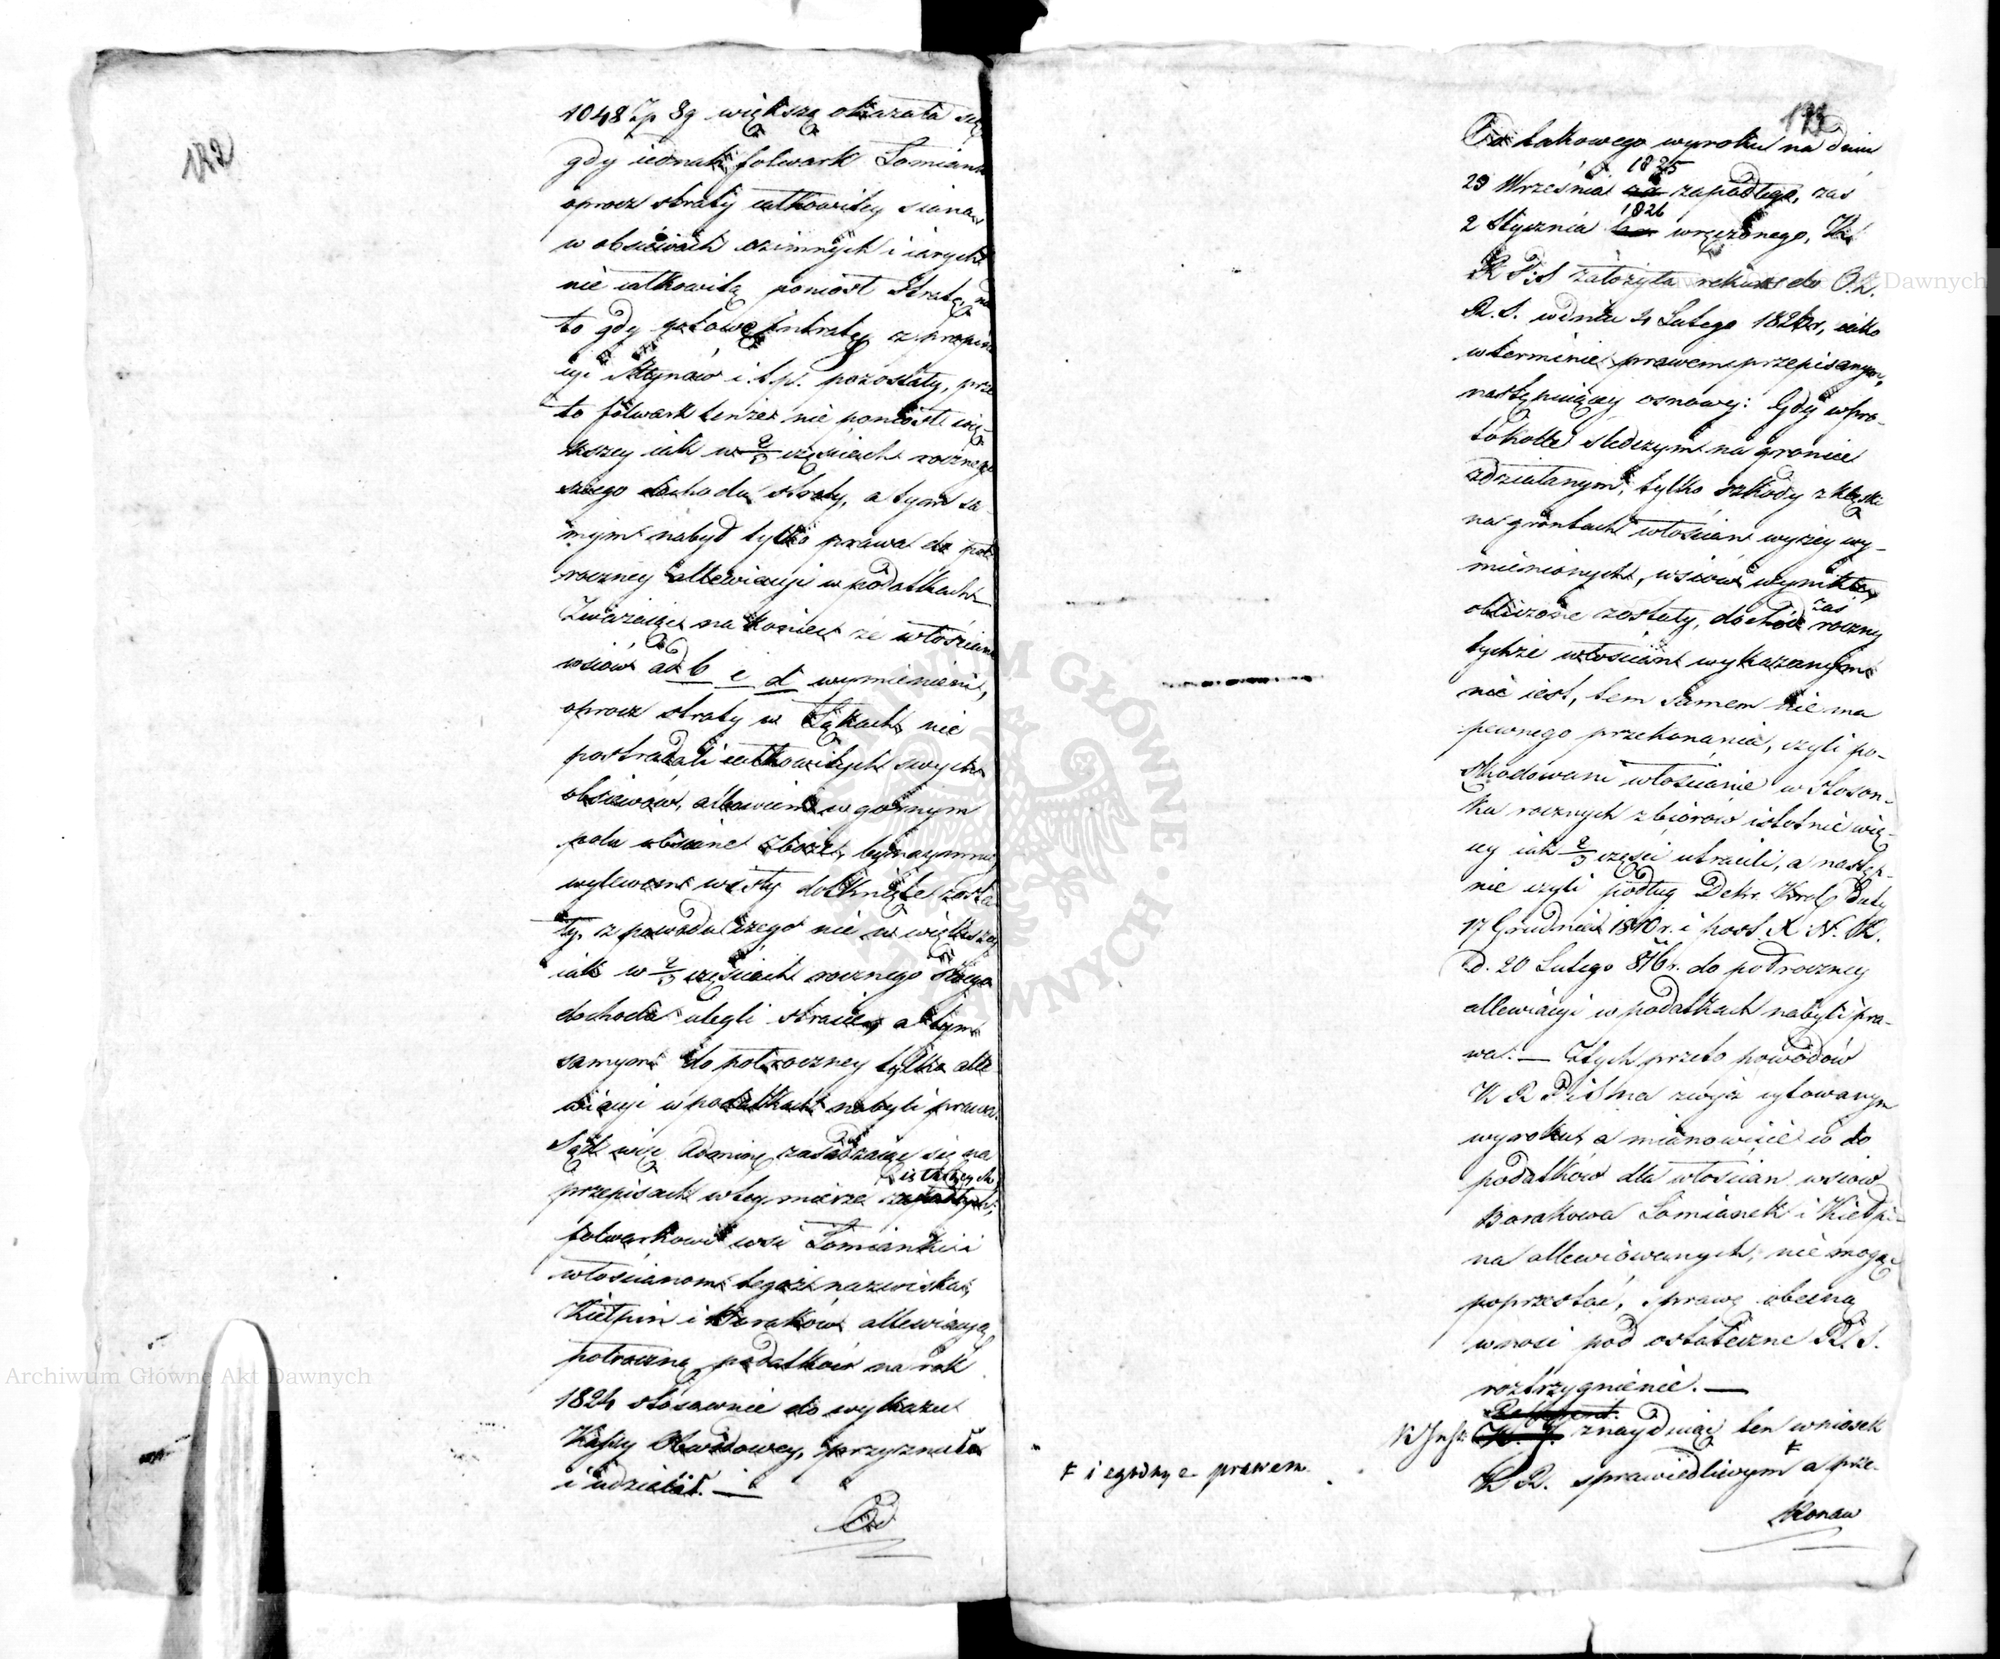 122
1048 Zp 8 g większą okazała się
gdy iednak folwark Łomianki
oprocz straty całkowitey siana
w obsiewach ozimnych i iarych
nie całkowitą poniosł stratę, nad
to gdy gotowe intraty z propina
cyi Młynów i. t. p. pozostały, prze
to folwark tenże nie poniosł wię-
kszey iak w 2/3 częściach roczne
go dochodu straty, a tym sa-
mym nabył tylko prawa do pół
roczney allewiacyi w podatkach
Zważaiąc na koniec że włościanie
wsiów ad b c d wymienieni,
oprocz straty w Łąkach nie
postradali całkowitych swych
obsiewów, albowiem w górnym
polu obsiane zboże, bynaymniey
wylewem wisły dotknięte zosta
ły, z powodu czego nie w większey
iak w 2/3 częściach rocznego swego
dochodu ulegli stracie, a tym
samym do półroczney tylko alle
wiacyi w podatkach nabyli prawa.
Sąd więc Adminny zasadzaiąc się na
przepisach w tey mierze istnących
folwarkowi wsi Łomianki i
włościanom tegoż nazwiska,
Kiełpin i Buraków allewiacyą
półroczną podatków na rok
1824 stosownie do wykazu
Kassy Obwodowey, przyznał
i udzielił. —
Od
123
Od takowego wyroku na dniu
1825
29 Września zapadłego, zaś
1826
2 Stycznia wręczonego, K.
R P i S założyła rekurs do O. K.
R. S. w dniu 4 Lutego 1826 r, iako
w terminie prawem przepisanym,
następuiącey osnowy: Gdy w pro-
tokolle śledczym na groncie
zdziałanym, tylko szkody z klęski
na grontach włościan wyżey wy-
mienionych, wsiów wynikłey
obliczone zostały, dochód zaś roczny
tychże włościan wykazanym
nie iest, tem samem nie ma
pewnego przekonania, czyli po-
szkodowani włościanie w stosun-
ku rocznych zbiorów istotnie wię-
cy iak 2/3 części utracili, a następ-
nie czyli podług Dekr. Król. Daty
17 Grudnia 1810 r. i post. X. N. K.
d. 20 Lutego 816 r. do półroczney
allewiacyi w podatkach nabyli pra-
wa. — Z tych przeto powodów
K R P i S na zwyż cytowanym
wyroku, a mianowicie co do
podatków dla włościan wsiów
Burakowa Łomianek i Kiełpi-
na allewiowanych, nie mogąc
poprzestać, sprawę obecną
wnosi pod ostateczne R. S.
roztrzygnienie. —
Referent.
K Inst. znayduiąc ten wniosek
K R. sprawiedliwym ⌗ a prze-
⌗ i zgodny z prawem.
konaw
Archiwum Główne Akt Dawnych
Archiwum Główne Akt Dawnych
ARCHIWUM GŁÓWNE AKT DAWNYCH